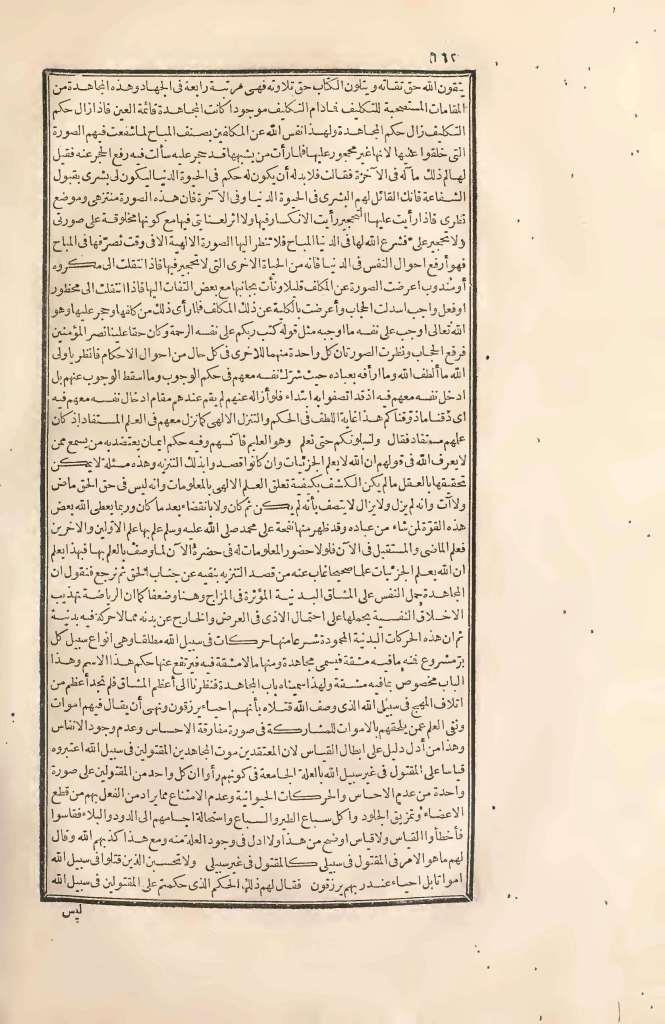 ٩٦٢
يتقون الله حق تقاته ويتلون الكتاب حق تلاوته فهى مرتبة رابعة فى الجهاد وهذه المجاهدة من
المقامات المستصحبة للتكليف فما دام التكليف موجودا كانت المجاهدة قائمة العين فاذا زال حكم
التكليف زال حكم المجاهدة ولهذا انفس الله عن المكلفين بصنف المباح لما شفعت فيهم الصورة
التى خلقوا عليها لانها غير محجور عليها فلما رأت من يشبهها قد حجر عليه سألت فيه رفع الحجر عنه فقيل
لها لم ذلك ما له فى الآخرة فقالت فلا بد له أن يكون له حكم فى الحيوة الدنيا ليكون لى بشرى بقبول
الشفاعة فانك القائل لهم البشرى فى الحيوة الدنيا وفى الآخرة فان هذه الصورة منتزهى وموضع
نظرى فاذا رأيت عليها التحجير رأيت الانكسار فيها ولا اثر لعنايتى فيها مع كونها مخلوقة على صورتى
ولا تحجير على فشرع الله لها فى الدنيا المباح فلا تنظر اليها الصورة الالهية الا فى وقت تصرفها فى المباح
فهو أرفع احوال النفس فى الدنيا فانه من الحياة الاخرى التى لا تحجير فيها فاذا انتقلت الى مكروه
أو مندوب اعرضت الصورة عن المكلف قليلا ونأت بجانبها مع بعض التفات اليها فاذا انتقلت الى محظور
او فعل واجب اسدلت الحجاب وأعرضت بالكلية عن ذلك المكلف فلما رأى ذلك من كلفها وحجر عليها وهو
الله تعالى اوجب على نفسه ما اوجبه مثل قوله كتب ربكم على نفسه الرحمة وكان حقا علينا نصر المؤمنين
فرفع الحجاب ونظرت الصورتان كل واحدة منهما للاخرى فى كل حال من احوال الاحكام فانظر يا ولى
الله ما ألطف الله وما ارأفه بعباده حيث شرك نفسه معهم فى حكم الوجوب وما اسقط الوجوب عنهم بل
ادخل نفسه معهم فيه اذ قد اتصفوا به ابتداء فلو أزاله عنهم لم يقم عندهم مقام ادخال نفسه معهم فيه
اى ذقنا ما ذوقناكم هذا غاية اللطف فى الحكم والتنزل الالهى كما نزل معهم فى العلم المستفاد اذ كان
علمهم مستفاد فقال ولنبلونكم حتى نعلم وهو العليم فآنسهم وفيه حكم ايمان يعتضد به من يسمع ممن
لا يعرف الله فى قولهم ان الله لا يعلم الجزئيات وان كانوا قصدوا بذلك التنزيه وهذه مسئلة لا يمكن
تحقيقها بالعقل ما لم يكن الكشف بكيفية تعلق العلم الالهى بالمعلومات وانه ليس فى حق الحق ماض
ولا آت وانه لم يزل ولا يزال لا يتصف بأنه لم يكن ثم كان ولا بانقضاء بعد ما كان وربما يعطى الله بعض
هذه القوة لمن شاء من عباده وقد ظهر منها نفحة على محمد صلى الله عليه وسلم علم بها علم الاولين والآخرين
فعلم الماضى والمستقبل فى الآن فلولا حضور المعلومات له فى حضرة الآن لما وصف بالعلم بها فبهذا يعلم
ان الله يعلم الجزئيات علما صحيحا غاب عنه من قصد التنزيه بنفيه عن جناب الحق ثم نرجع فنقول ان
المجاهدة حمل النفس على المشاق البدنية المؤثرة فى المزاج وهنا وضعفا كما ان الرياضة تهذيب
الاخلاق النفسية بحملها على احتمال الاذى فى العرض والخارج عن بدنه مما لا حركة فيه بدنية
ثم ان هذه الحركات البدنية المحمودة شرعا منها حركات فى سبيل الله مطلقا وهى انواع سبيل كل
بر مشروع فمنه ما فيه مشقة فيسمى مجاهدة ومنها ما لا مشقة فيه فيرتفع عنها حكم هذا الاسم وهذا
الباب مخصوص بما فيه مشقة ولهذا اسميناه باب المجاهدة فنظرنا الى أعظم المشاق فلم نجد أعظم من
اتلاف المهج فى سبيل الله الذى وصف الله قتلاه بأنهم احياء يرزقون ونهى أن يقال فيهم اموات
ونفى العلم عمن يلحقهم بالاموات للمشاركة فى صورة مفارقة الاحساس وعدم وجود الانفاس
وهذا من أدل دليل على ابطال القياس لان المعتقدين موت المجاهدين المقتولين فى سبيل الله اعتبروه
قياسا على المقتول فى غير سبيل الله بالعلة الجامعة فى كونهم رأوا ان كل واحد من المقتولين على صورة
واحدة من عدم الاحساس والحركات الحيوانية وعدم الامتناع مما يراد من الفعل بهم من قطع
الاعضاء وتمزيق الجلود وأكل سباع الطير والسباع واستحالة اجسامهم الى الدود والبلاء فقاسوا
فأخطأوا القياس ولا قياس اوضح من هذا ولا ادل فى وجود العلة منه ومع هذا كذبهم الله وقال
لهم ما هو الامر فى المقتول فى سبيلى كالمقتول فى غير سبيلى ولا تحسبن الذين قتلوا فى سبيل الله
امواتا بل احياء عند ربهم يرزقون فقال لهم ذلك الحكم الذى حكمتم على المقتولين فى سبيل الله
ليس